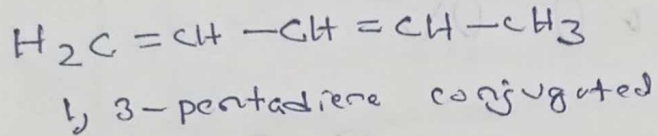 H2C = CH - CH = CH - CH3
1, 3 - pentadiene conjugated